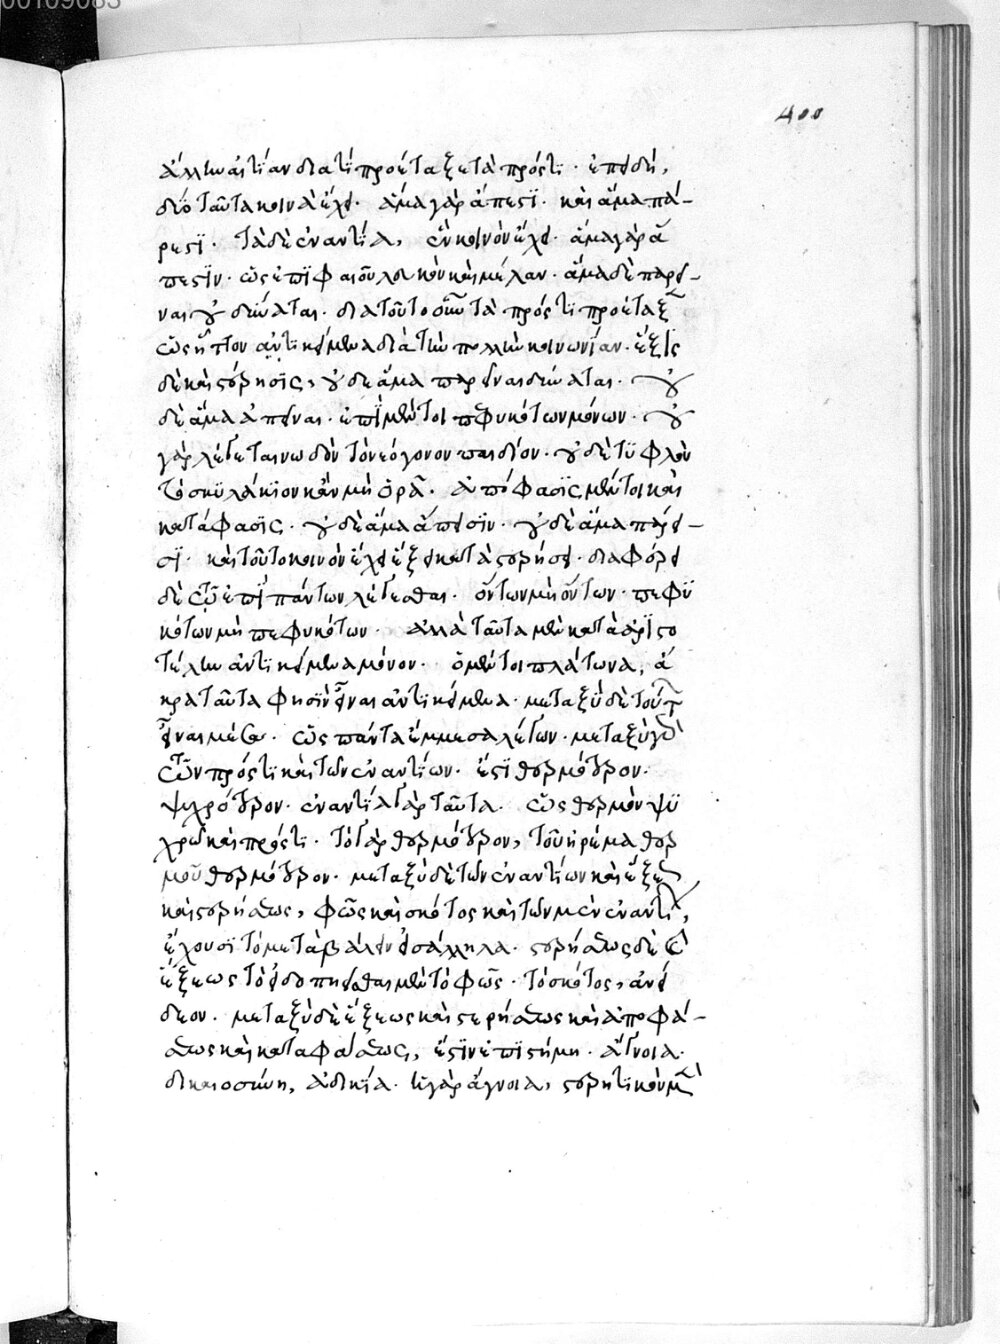 00109083
400
ἄλλην αἰτίαν διατί προέταξε τὰ πρός τι · ἐπειδὴ,
διότι ταῦτα κοινὰ ἔχει · ἅμα γὰρ ἄπεστι · καὶ ἅμα πά-
ρεστι · τὰ δὲ ἐναντία, ἓν κοινὸν ἔχει · ἅμα γὰρ ἄ
πεστιν · ὡς ἐπὶ φαιοῦ λευκὸν καὶ μέλαν · ἅμα δὲ παρεῖ-
ναι οὐ δύναται · διὰ τοῦτο οὖν τὰ πρός τι προέταξ
ὡς ἧττον ἀντικείμενα διὰ τὴν πολλὴν κοινωνίαν · ἕξις
δὲ καὶ στέρησις, οὐδὲ ἅμα παρεῖναι δύναται · οὐ
δὲ ἅμα ἀπεῖναι · ἐπὶ μέντοι πεφυκότων μόνων · οὐ
γὰρ λέγεται νωδὸν τὸ νεόγονον παιδίον · οὐδὲ τυφλὸν
τὸ σκυλάκιον κἂν μὴ ὁρᾶ · ἀπόφασις μέντοι καὶ
κατάφασις · οὐδὲ ἅμα ἄπεισιν · οὐδὲ ἅμα πάρει-
σι · καὶ τοῦτο κοινὸν ἔχει ἕξει καὶ στερήσει · διαφέρει
δὲ τῷ ἐπὶ πάντων λέγεσθαι · ὄντων μὴ ὄντων · πεφυ
κότων μὴ πεφυκότων · ἀλλὰ ταῦτα μὲν κατὰ ἀριστο
τέλην ἀντικείμενα μόνον · ὁ μέντοι πλάτων, ἄ
κρα ταῦτα φησὶν εἶναι ἀντικείμενα · μεταξὺ δὲ τούτ
εἶναι μέσα · ὡς πάντα ἔμμεσα λέγων · μεταξὺ γὰρ
τῶν πρός τι καὶ τῶν ἐναντίων · ἔστι θερμότερον ·
ψυχρότερον · ἐναντία γὰρ ταῦτα · ὡς θερμὸν ψυ
χρὸν καὶ πρός τι · τὸ γὰρ θερμότερον, τοῦ ἠρέμα θερ
μοῦ θερμότερον · μεταξὺ δὲ τῶν ἐναντίων καὶ ἕξε
καὶ στερήσεως, φῶς καὶ σκότος καὶ τῶν μὲν ἐναντί,
ἔχουσι τὸ μεταβάλλειν εἰς ἄλληλα · στερήσεως δὲ καὶ
ἕξεως τὸ εἰδοπεποιεῖσθαι μὲν τὸ φῶς · τὸ σκότος, ἀνεί
δεον · μεταξὺ δὲ ἕξεως καὶ στερήσεως καὶ ἀποφά-
σεως καὶ καταφάσεως, ἔστιν ἐπιστήμη · ἄγνοια ·
δικαιοσύνη, ἀδικία · ἡ γὰρ ἄγνοια, στερητικὸν μὲν